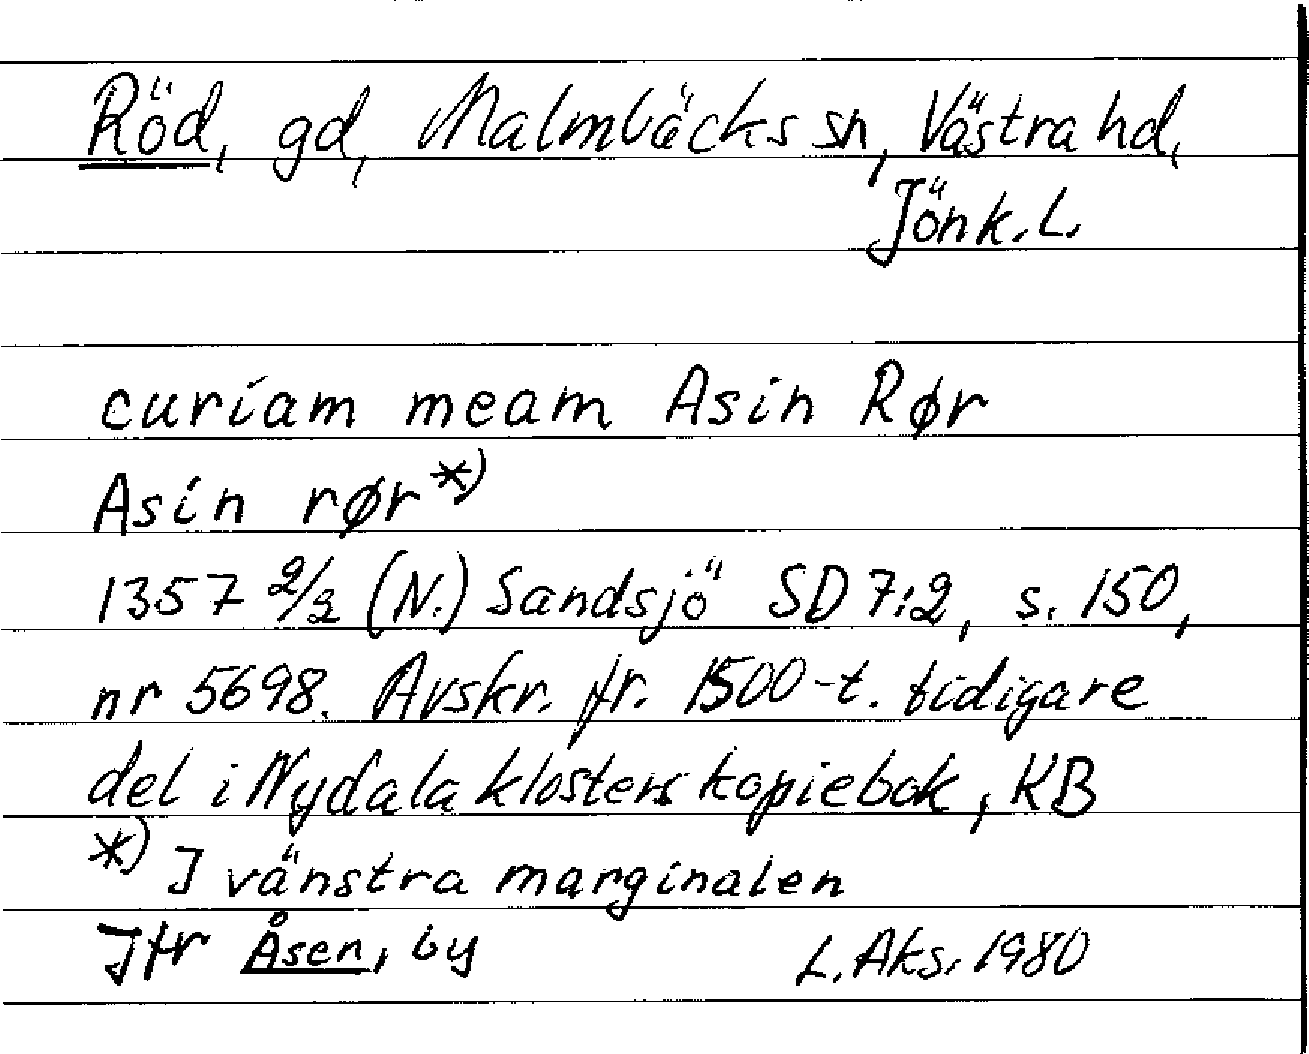 Röd, gd, Malmbäcks sn, Västra hd,
Jönk. L.
curiam meam Asin Rør
Asin rør*)
1357 2/2 (N.) Sandsjö SD 7:2, s. 150,
nr 5698. Avskr. fr. 1500-t. tidigare
del i Nydala klosters kopiebok, KB
*) I vänstra marginalen
Jfr Åsen, by L. Aks. 1980